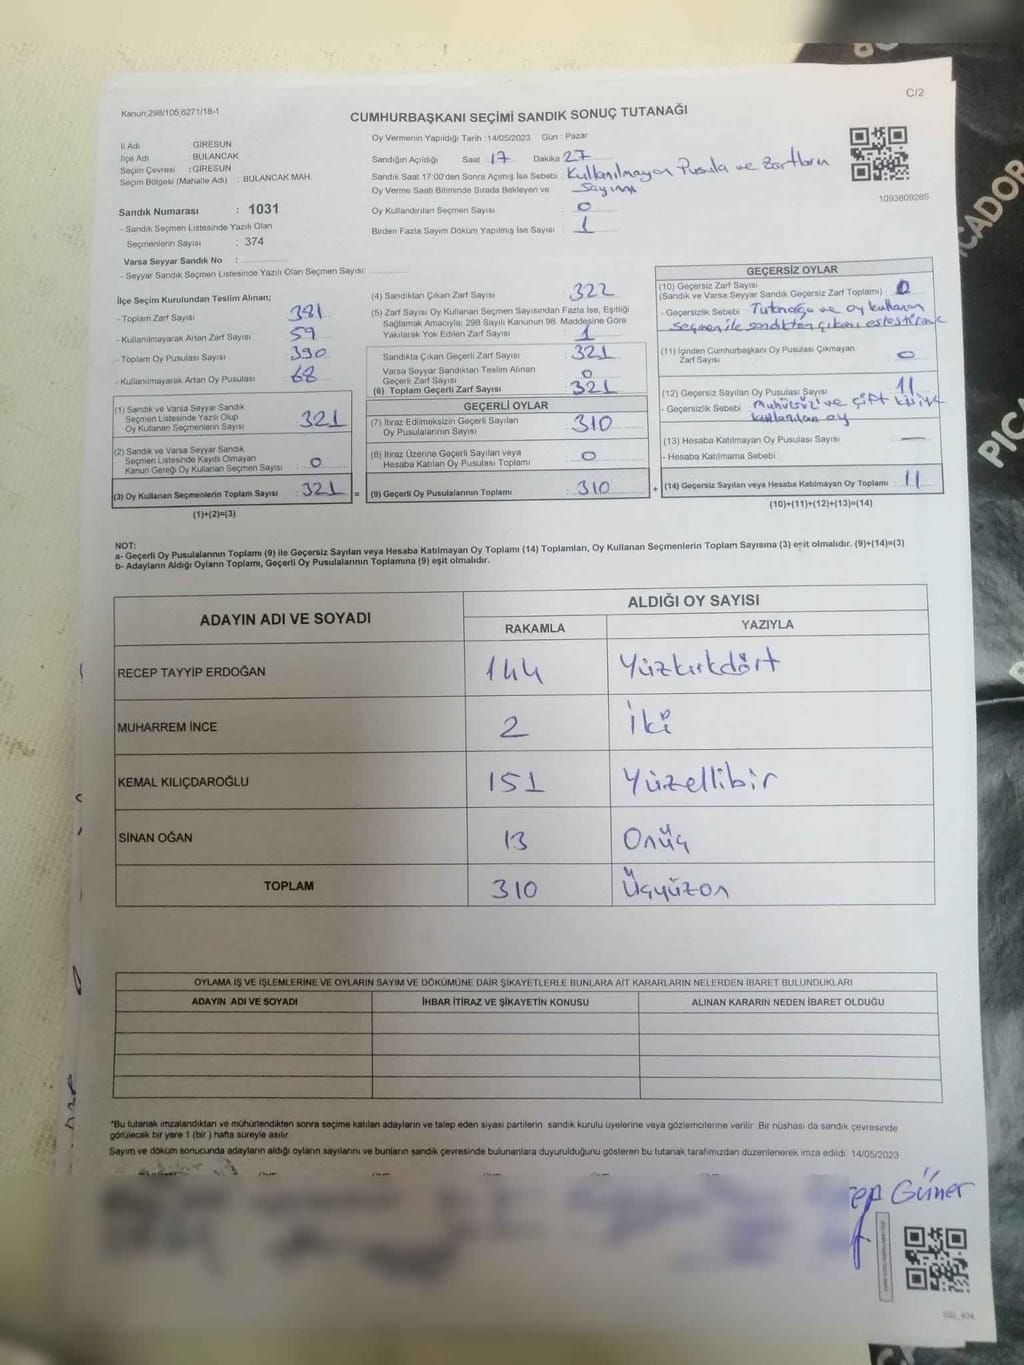 C/2
Kanun:298/105,6271/18-1
CUMHURBAŞKANI SEÇİMİ SANDIK SONUÇ TUTANAĞI
İl Adı GİRESUN
İlçe Adı BULANCAK
Seçim Çevresi : GİRESUN
Seçim Bölgesi (Mahalle Adı) : BULANCAK MAH.
Sandık Numarası : 1031
- Sandık Seçmen Listesinde Yazılı Olan
Seçmenlerin Sayısı : 374
Varsa Seyyar Sandık No :
- Seyyar Sandık Seçmen Listesinde Yazılı Olan Seçmen Sayısı:
Oy Vermenin Yapıldığı Tarih :14/05/2023 Gün : Pazar
Sandığın Açıldığı Saat : 17 Dakika 27
Sandık Saat 17:00'den Sonra Açımış İse Sebebi : Kullanılmayan Pusula ve Zarfların
Oy Verme Saati Bitiminde Sırada Bekleyen ve Sayımı
Oy Kullandırılan Seçmen Sayısı : 0
Birden Fazla Sayım Döküm Yapılmış İse Sayısı : 1
1093809285
İlçe Seçim Kurulundan Teslim Alınan;
- Toplam Zarf Sayısı : 381
- Kullanılmayarak Artan Zarf Sayısı : 59
- Toplam Oy Pusulası Sayısı : 390
- Kullanılmayarak Artan Oy Pusulası : 68
(1) Sandık ve Varsa Seyyar Sandık
Seçmen Listesinde Yazılı Olup
Oy Kullanan Seçmenlerin Sayısı : 321
(2) Sandık ve Varsa Seyyar Sandık
Seçmen Listesinde Kayıtlı Olmayan
Kanun Gereği Oy Kullanan Seçmen Sayısı : 0
(3) Oy Kullanan Seçmenlerin Toplam Sayısı : 321 =
(1)+(2)=(3)
(4) Sandıktan Çıkan Zarf Sayısı : 322
(5) Zarf Sayısı Oy Kullanan Seçmen Sayısından Fazla İse, Eşitliği
Sağlamak Amacıyla, 298 Sayılı Kanunun 98. Maddesine Göre
Yakılarak Yok Edilen Zarf Sayısı : 1
Sandıkta Çıkan Geçerli Zarf Sayısı : 321
Varsa Seyyar Sandıktan Teslim Alınan
Geçerli Zarf Sayısı : 0
(6) Toplam Geçerli Zarf Sayısı : 321
GEÇERLİ OYLAR
(7) İtiraz Edilmeksizin Geçerli Sayılan
Oy Pusulalarının Sayısı : 310
(8) İtiraz Üzerine Geçerli Sayılan veya
Hesaba Katılan Oy Pusulası Toplamı : 0
(9) Geçerli Oy Pusulalarının Toplamı : 310 +
GEÇERSİZ OYLAR
(10) Geçersiz Zarf Sayısı
(Sandık ve Varsa Seyyar Sandık Geçersiz Zarf Toplamı) : 0
- Geçersizlik Sebebi : Tutanağa ve oy kullanan
seçmen ile sandıktan çıkanı
(11) İçinden Cumhurbaşkanı Oy Pusulası Çıkmayan
Zarf Sayısı : 0
(12) Geçersiz Sayılan Oy Pusulası Sayısı : 11
- Geçersizlik Sebebi : Mühürsüz ve çift kişiye
kullanılan oy
(13) Hesaba Katılmayan Oy Pusulası Sayısı : —
- Hesaba Katılmama Sebebi :
(14) Geçersiz Sayılan veya Hesaba Katılmayan Oy Toplamı : 11
(10)+(11)+(12)+(13)=(14)
NOT:
a- Geçerli Oy Pusulalarının Toplamı (9) ile Geçersiz Sayılan veya Hesaba Katılmayan Oy Toplamı (14) Toplamları, Oy Kullanan Seçmenlerin Toplam Sayısına (3) eşit olmalıdır. (9)+(14)=(3)
b- Adayların Aldığı Oyların Toplamı, Geçerli Oy Pusulalarının Toplamına (9) eşit olmalıdır.
ADAYIN ADI VE SOYADI ALDIĞI OY SAYISI
RAKAMLA YAZIYLA
RECEP TAYYİP ERDOĞAN 144 Yüzkırkdört
MUHARREM İNCE 2 İki
KEMAL KILIÇDAROĞLU 151 Yüzellibir
SİNAN OĞAN 13 Onüç
TOPLAM 310 Üçyüzon
OYLAMA İŞ VE İŞLEMLERİNE VE OYLARIN SAYIM VE DÖKÜMÜNE DAİR ŞİKAYETLERLE BUNLARA AİT KARARLARIN NELERDEN İBARET BULUNDUKLARI
ADAYIN ADI VE SOYADI İHBAR İTİRAZ VE ŞİKAYETİN KONUSU ALINAN KARARIN NEDEN İBARET OLDUĞU
*Bu tutanak imzalandıktan ve mühürlendikten sonra seçime katılan adayların ve talep eden siyasi partilerin sandık kurulu üyelerine veya gözlemcilerine verilir. Bir nüshası da sandık çevresinde
görülecek bir yere 1 (bir ) hafta süreyle asılır.
Sayım ve döküm sonucunda adayların aldığı oyların sayılarını ve bunların sandık çevresinde bulunanlara duyurulduğunu gösteren bu tutanak tarafımızdan düzenlenerek imza edildi. 14/05/2023
Güner
PICADOR